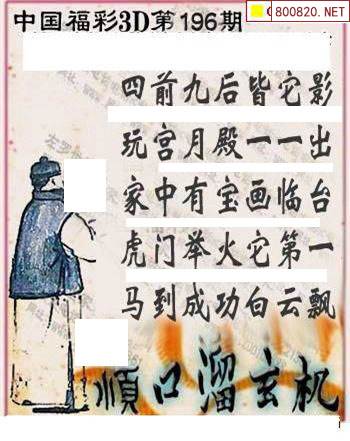 800820.NET
中国福彩3D第196期
四前九后皆它影
玩宫月殿一一出
家中有宝画临台
虎门举火它第一
马到成功白云飘
顺口溜玄机